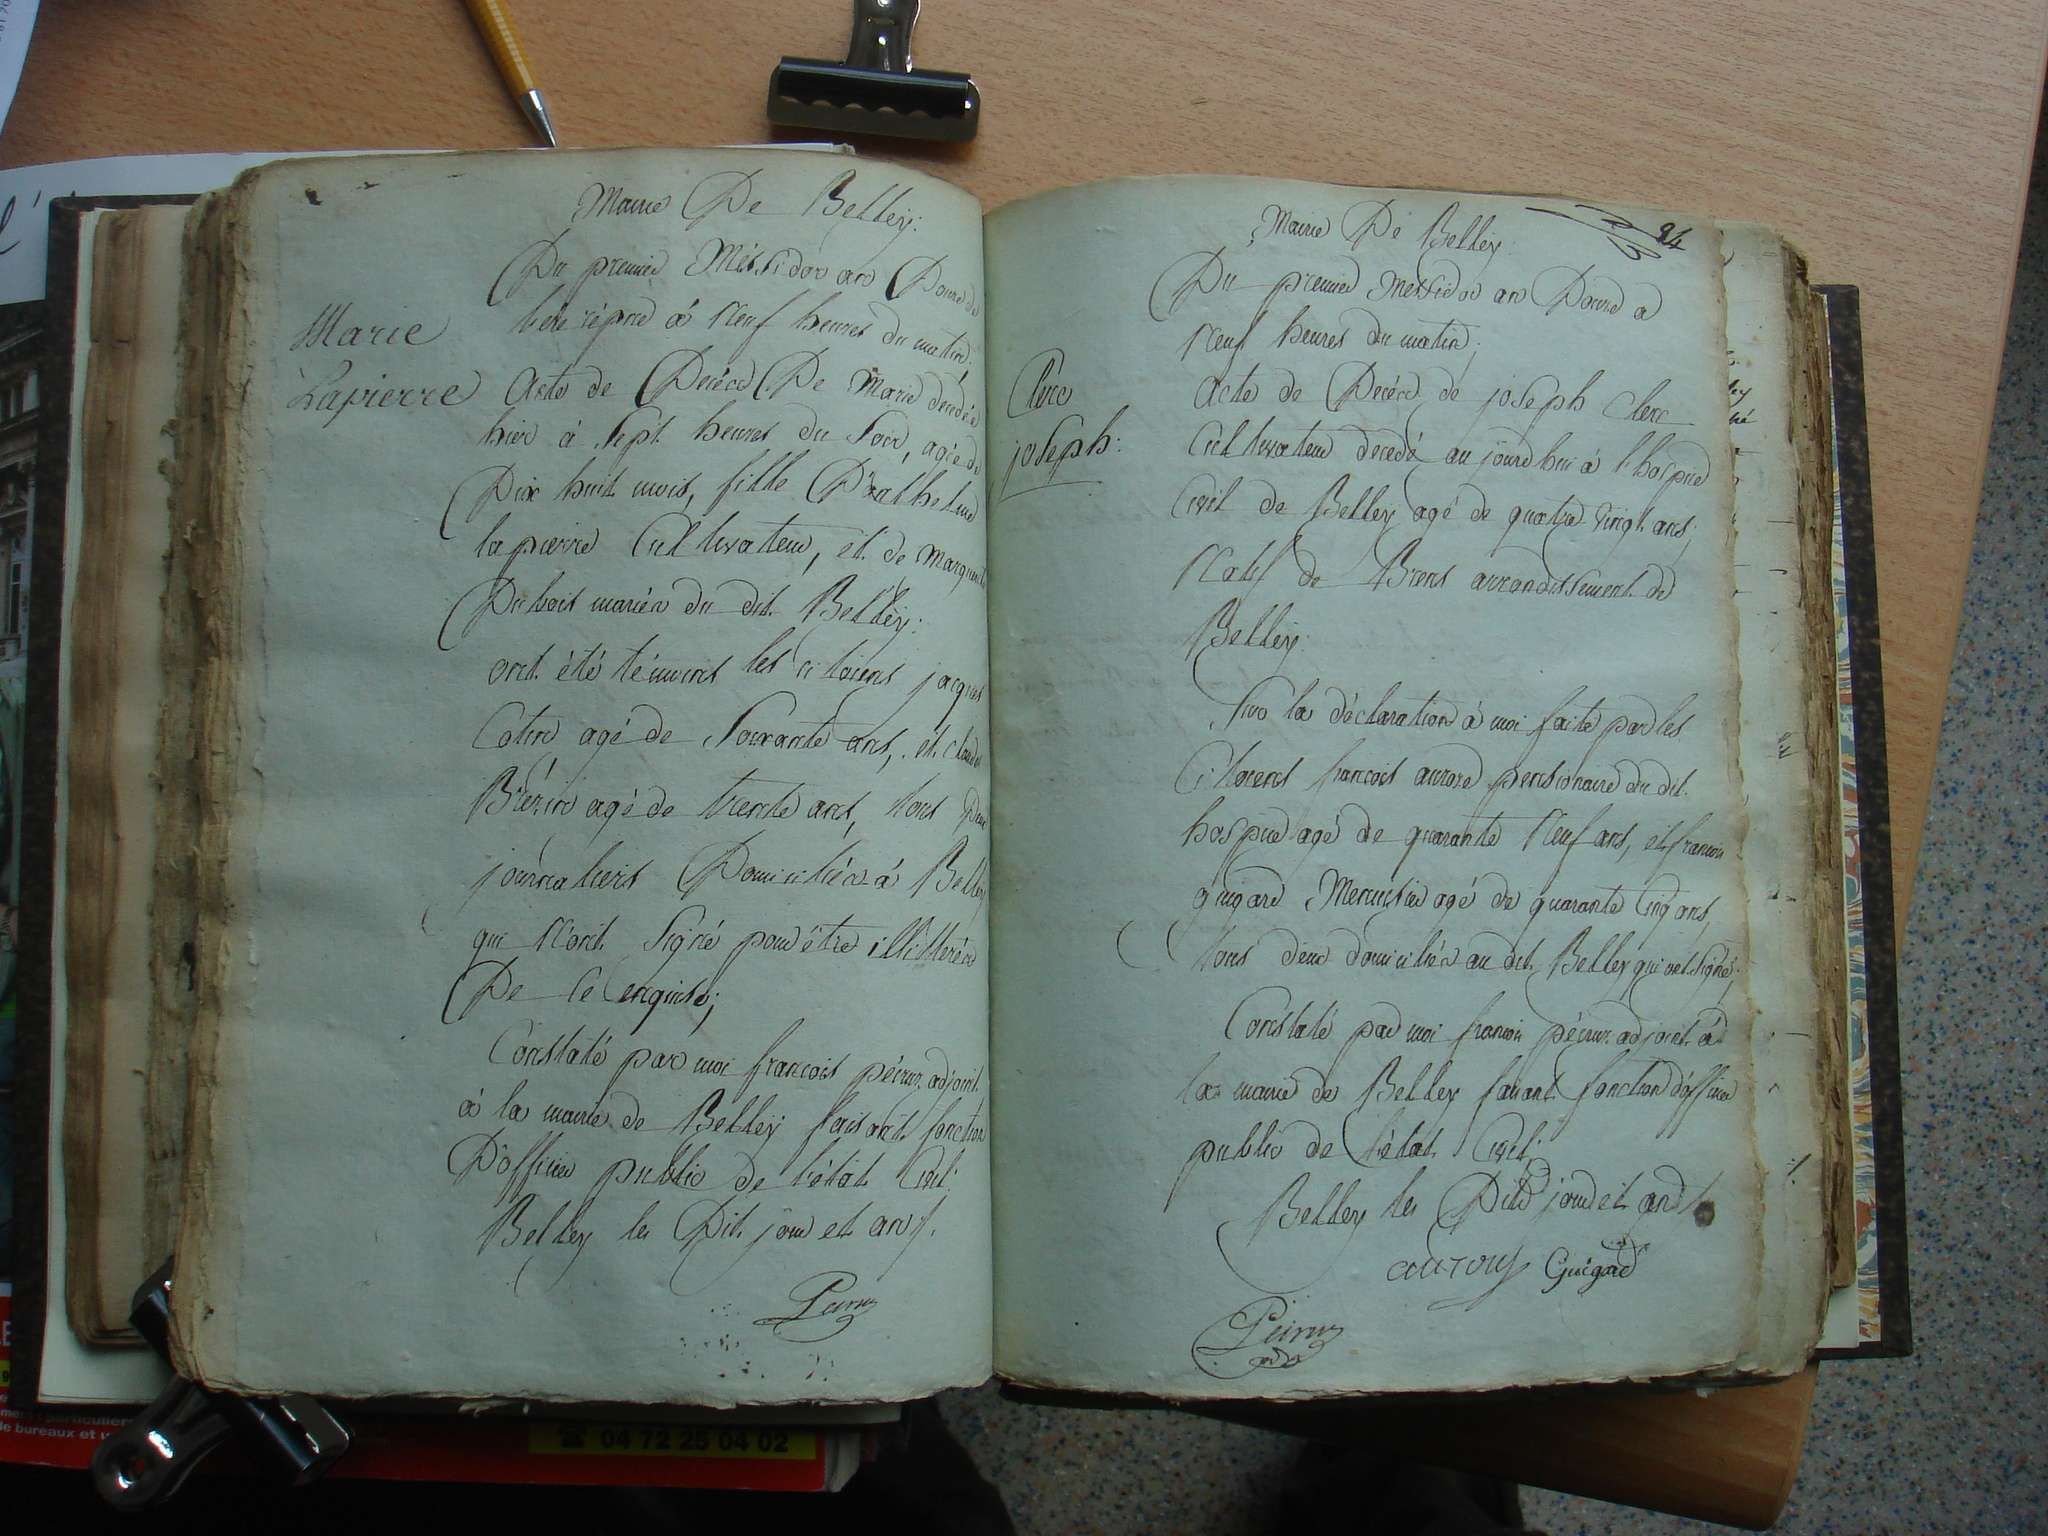 Mairie De Belley:
Du premier Messidor an Douze de
l'ere répue à Neuf heures du matin;
Marie
Lapierre
Acte de Décéd De Marie décédée
hier à Sept heures du Soir, agée de
Dix huit mois, fille D'anthelme
lapierre Cultivateur, et de Marguerite
Dubois mariés du dit Belley:
ont été témoins les citoiens jacques
Cotin agé de Soixante ans, et claude
agé de trente ans, tous deux
journaliers Domiciliés à Belley
qui N'ont Signé pour être illitterés
De ce enquis;
Constaté par moi francois péiruz adjoint
à la mairie de Belley faisant fonction
D'officier public de l'état Civil:
Belley les Dit jour et an
Peiruz
94
Mairie De Belley:
Du premier Messidor an Douze à
Neuf heures du matin;
Clerc
joseph:
Acte de Décéd de joseph Clerc
Cultivateur decedé aujourdhui à l'hospice
Civil de Belley agé de quatre vingt ans;
Natif de Brens arrondissement de
Belley:
Sur la déclaration à moi faite par les
Citoiens francois pensionaire du dit
hospice agé de quarante Neuf ans, et francois
guigard Menuisier agé de quarante Cinq ans,
tous deux domiciliés au dit Belley qui ont Signé;
Constaté par moi francois péiruz adjoint à
la mairie de Belley faisant fonction d'officier
public de l'état Civil;
Belley les Dits jour et an
Guigard
Peiruz